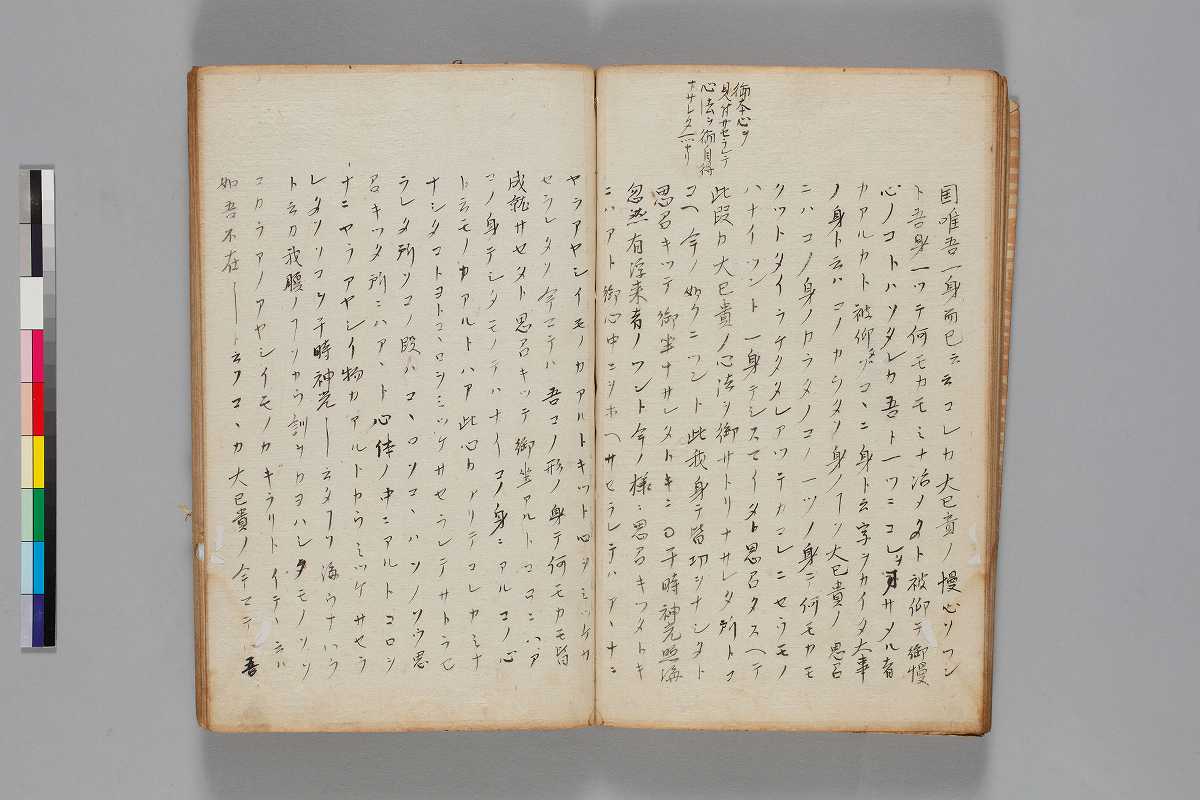 御本心ヲ
見付サセラレテ
心法ヲ御自得
ナサレタ
国唯吾一身而已ト云コレカ大己貴ノ慢心ソワン
ト吾身一ツテ何モカモミナ治メタト被仰テ御慢
心ノコトハソタレカ吾ト一ツニコレヲサメル者
カアルカト被仰ソコニ身ト云字ヲカイタ大事
ノ身ト云ハコノカラタノ身ノ大己貴ノ思召
ニハコノ身ノカラタノコノ一ツノ身テ何モカモ
クツトタイラケタタレアツテカコレニセウモノ
ハナイワント一身テシスマイタト思召タスヘテ
此段カ大己貴ノ心法ヲ御サトリナサレタ所トコ
コヘ今ノ如クニワント此我身テ皆功ヲナシタト
思召キツテ御坐ナサレタトキニ于時神光照海
忽然有浮来者ノワント今ノ様ニ思召キツタトキ
ニハアト御心中ニ
ヤラアヤシイモノカアルトキツト心ヲミツケサ
セラレタソ今マテハ吾コノ形ノ身テ何モカモ皆
成就サセタト思召キツテ御坐アルトココニハア
コノ身テシタモノテハナイコノ身ニアルコノ心
ト云モノカアルトハア此心カアリテコレカミナ
ナシタコトヨトココロヲミツケサセラレテサトラセ
ラレタ所ソコノ段ハココロソココハソノソウ思
召キツタ所ニハアヽト心体ノ中ニアルトコロノ
ナニヤラアヤシイ物カアルトカウミツケサセラ
レタソソコヲ于時神光――云タソ海ウナハラ
ト云カ我腹ノ訓ヲカヨハシタモノソソ
コカラアノアヤシイモノカキラリトイテ云ハ
如吾不在――ト云ココカ大己貴ノ今マテハ吾